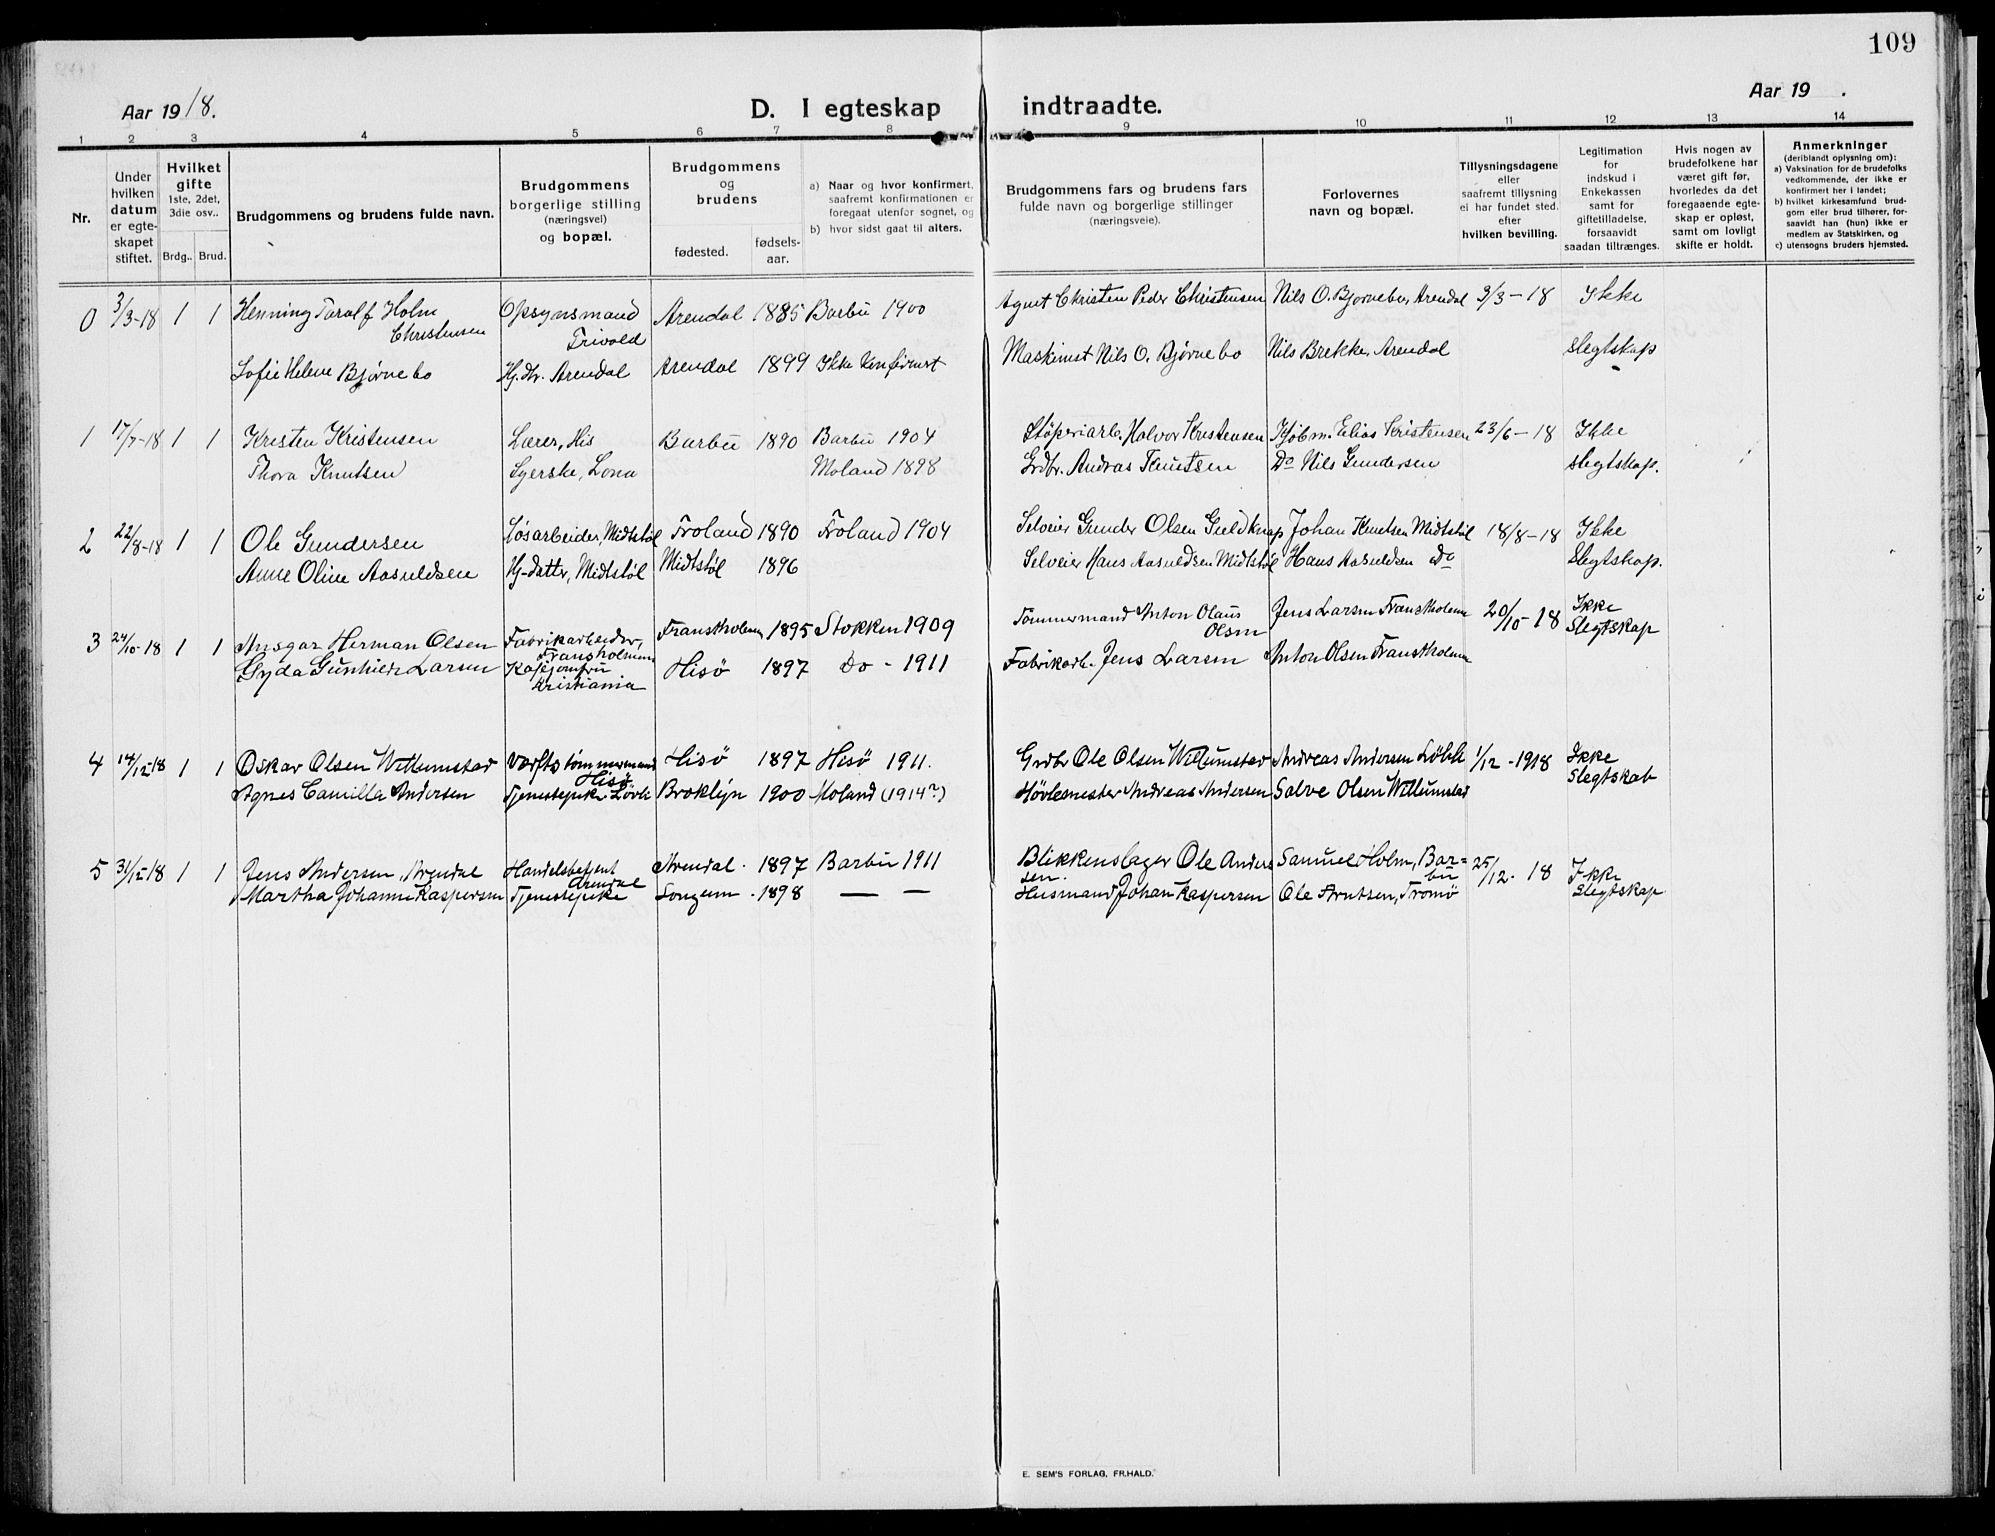 109
Aar 1918.
D. I egteskap indtraadte.
Aar 19 .
1 2 3 4 5 6 7 8 9 10 11 12 13 14
Nr.
Under hvilken datum er egte-skapet stiftet.
Hvilket gifte 1ste, 2det, 3die osv..
Brdg.. Brud.
Brudgommens og brudens fulde navn.
Brudgommens borgerlige stilling (næringsvei) og bopæl.
Brudgommens og brudens
fødested. fødsels-aar.
a) Naar og hvor konfirmert, saafremt konfirmationen er foregaat utenfor sognet, og
b) hvor sidst gaat til alters.
Brudgommens fars og brudens fars fulde navn og borgerlige stillinger (næringsveie).
Forlovernes navn og bopæl.
Tillysningsdagene eller saafremt tillysning ei har fundet sted, efter hvilken bevilling.
Legitimation for indskud i Enkekassen samt for giftetilladelse, forsaavidt saadan tiltrænges.
Hvis nogen av brudefolkene har været gift før, hvorledes da det foregaaende egte-skap er opløst, samt om lovligt skifte er holdt.
Anmerkninger
(deriblandt oplysning om):
a) Vaksination for de brudefolks vedkommende, der ikke er konfirmert her i landet;
b) hvilket kirkesamfund brud-gom eller brud tilhører, for-saavidt han (hun) ikke er medlem av Statskirken, og
c) utensogns bruders hjemsted.
0 3/3-18 1 1 Henning Taralf Holm Christensen Opsynsmand Trivold Arendal 1885 Barbu 1900 Agent Christen Peder Christensen Nils O. Bjørnebo, Arendal 3/3-18 Ikke
Sofie Helene Bjørnebo Hj.dtr. Arendal Arendal 1899 Ikke Konfirmert Maskinist Nils O. Bjørnebo Nils Brekke, Arendal slegtskap
1 17/7-18 1 1 Kristen Kristensen Lærer, His Barbu 1890 Barbu 1904 Støperiarb. Halvor Kristensen Kjøbm. Elias Kristensen 23/6-18 Ikke
Thora Knutsen Syerske, Lona Moland 1898 Grdbr. Andras Knutsen Do Nils Gundersen slegtskap.
2 22/8-18 1 1 Ole Gundersen Løsarbeider, Midtstøl Froland 1890 Froland 1904 Selveier Gunder Olsen Guldknap Johan Knutsen Midtstøl 18/8-18 Ikke
Anne Oline Aasuldsen Hj-datter, Midtstøl Midtstøl 1896 Selveier Hans Aasuldsen Midtstøl Hans Aasuldsen Do Slegtskap.
3 24/10-18 1 1 Ansgar Herman Olsen Fabrikarbeider, Fransholmen Franskholmen 1895 Stokken 1909 Tømmermand Anton Olaus Olsen Jens Larsen Franskholmen 20/10-18 Ikke Slegtskap
Gyda Gunhilde Larsen Kafejomfru Kristiania Hisø 1897 Do - 1911 Fabrikarb. Jens Larsen Anton Olsen Franskholmen
4 14/12-18 1 1 Oskar Olsen Willumstad Værftstømmermand Hisø Hisø 1897 Hisø 1911. Grdbr Ole Olsen Willumstad Andreas Andersen Løvli 1/12-1918 Ikke Slegtskab
Agnes Camilla Andersen Tjenestepike Løvli Broklyn 1900 Moland (1914?) Høvlemester Andreas Andersen Salve Olsen Willumstad
5 31/12-18 1 1 Jens Andersen, Arendal Handelsbetjent Arendal Arendal. 1897 Barbu 1911 Blikkenslager Ole Andersen. Samuel Holm, Bar=bu 25/12-18 Ikke Slegtskap
Martha Johanne Kaspersen Tjenestepike Songum. 1898 — — Husmand Johan Kaspersen Ole Arntsen, Tromø
E. SEM'S FORLAG, FR.HALD.